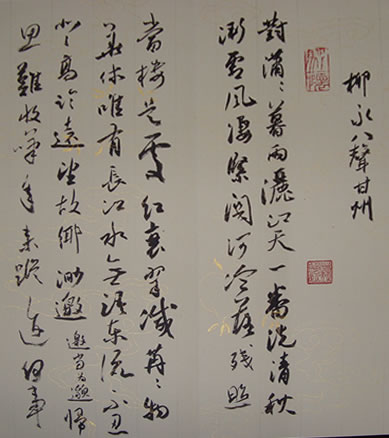 柳永八聲甘州
對瀟〻暮雨灑江天一番洗清秋
漸霜風凄緊關河冷落殘照
當樓是處紅衰翠減苒〻物
華休唯有長江水無語東流不忍
登高臨遠望故鄉渺邀邀當為邈歸
思難收嘆年來蹤迹何事